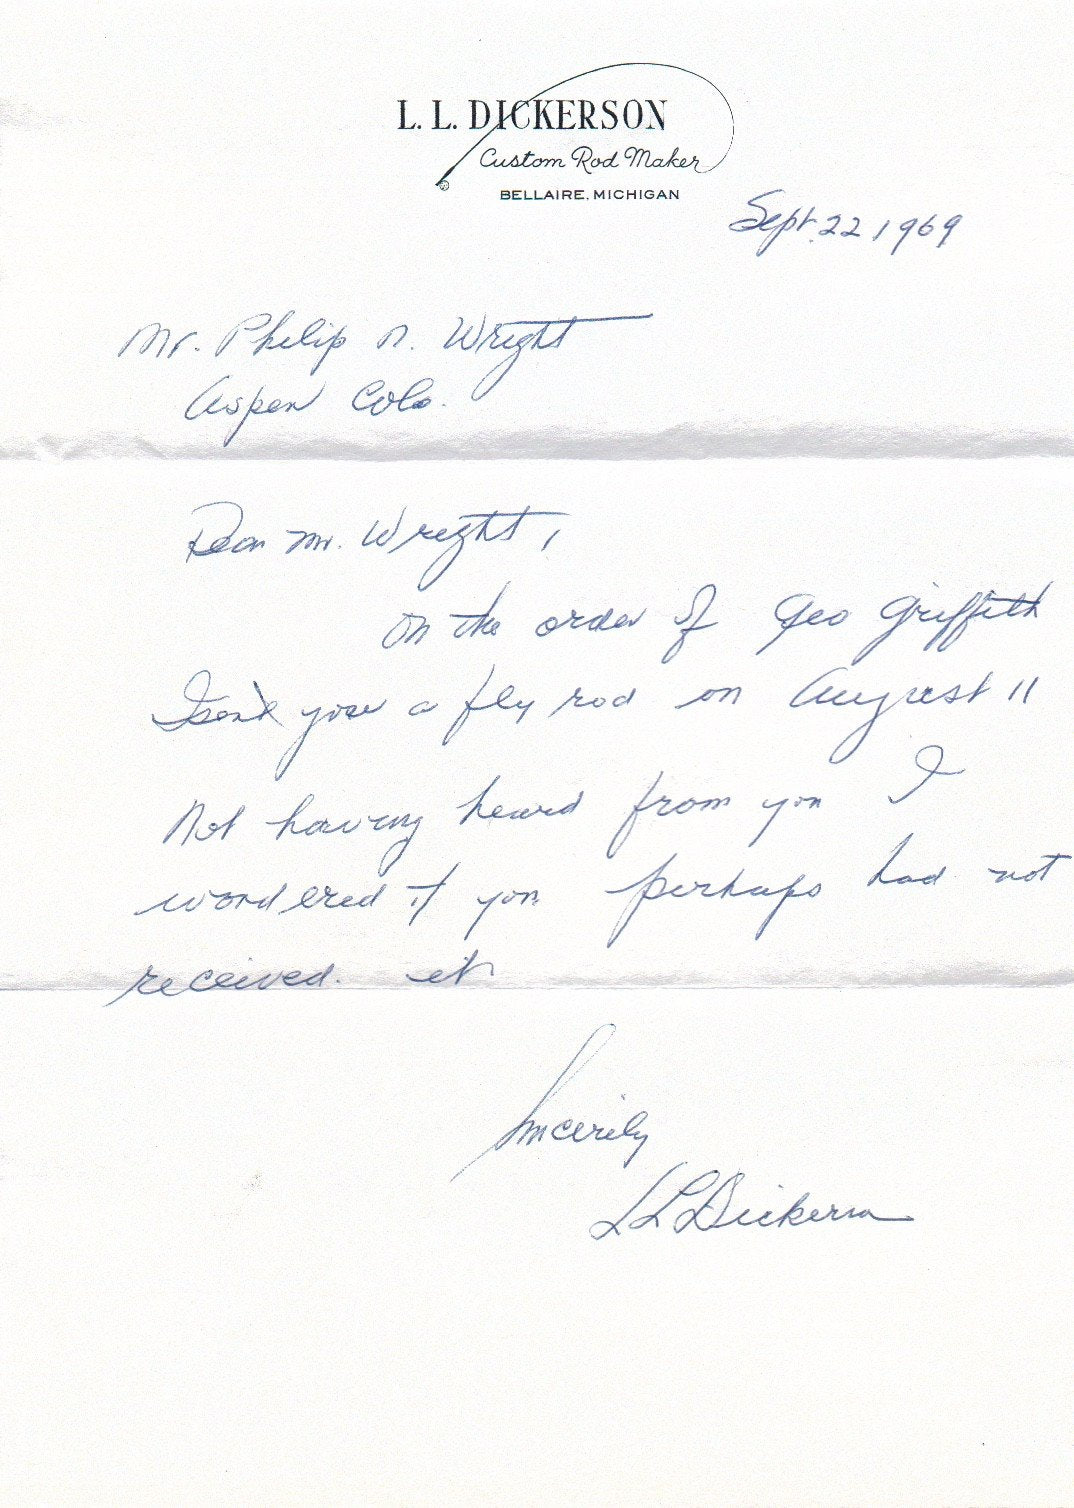 L. L. DICKERSON
Custom Rod Maker
BELLAIRE, MICHIGAN
Sept. 22 1969
Mr. Philip N. Wright
Aspen Colo.
Dear Mr. Wright,
On the order of Geo Griffith
I sent you a fly rod on August 11
Not having heard from you I
wondered if you perhaps had not
received it
Sincerily
LL Dickerson